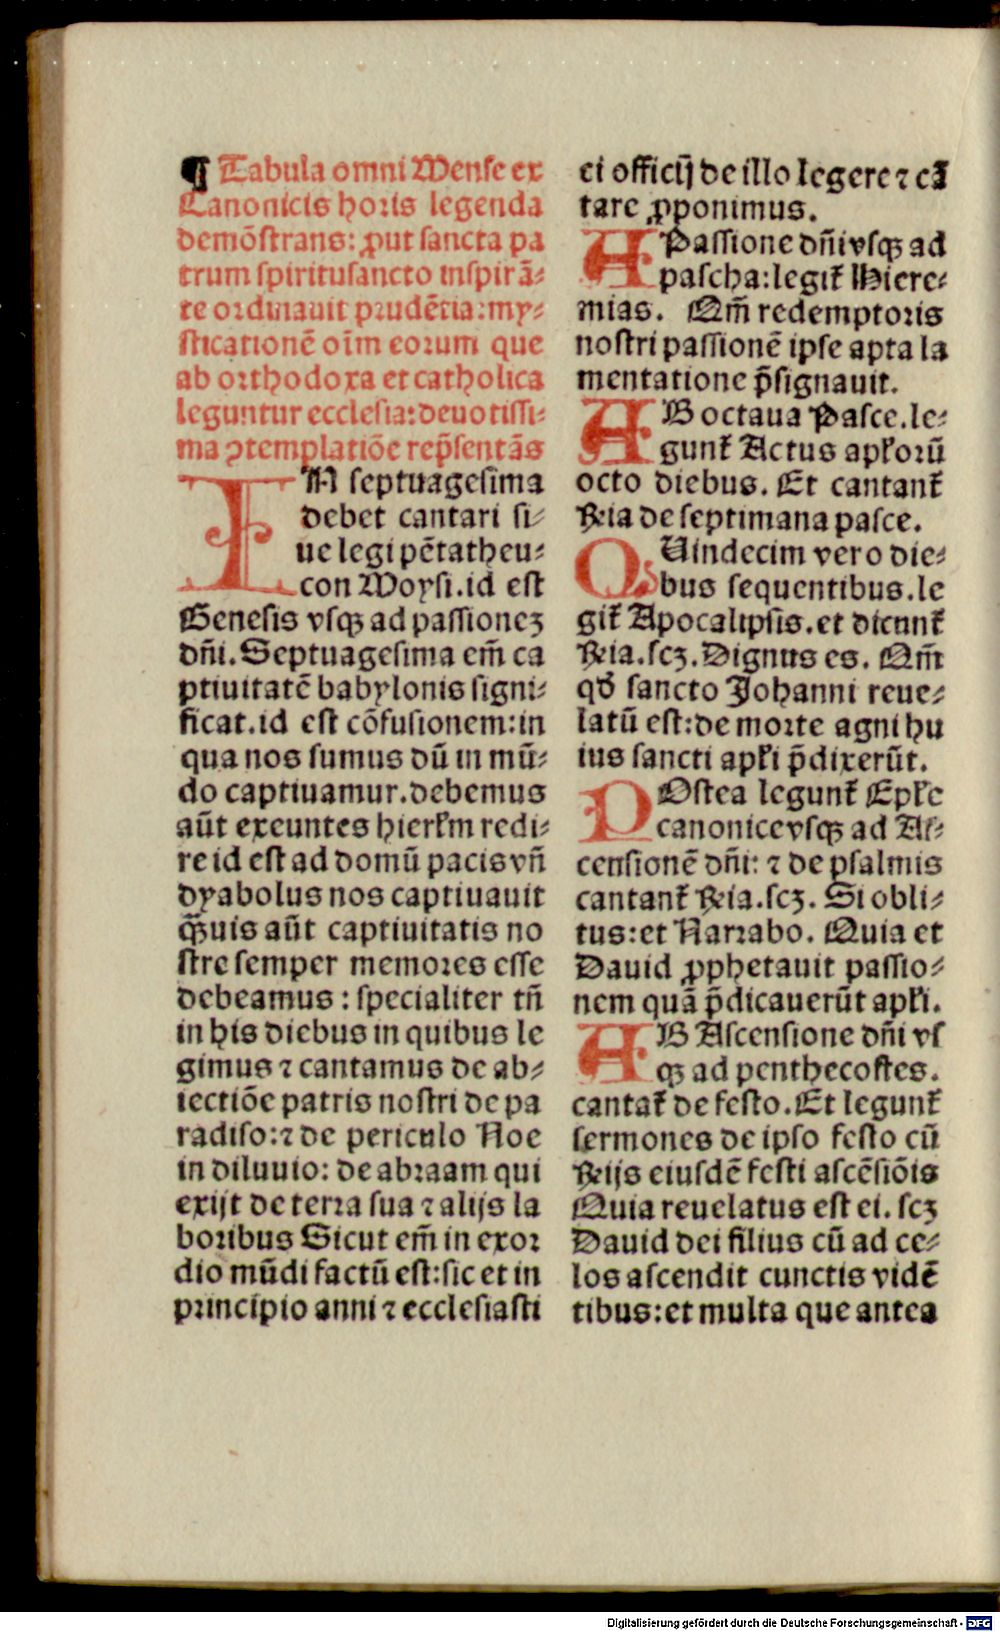 ¶ Tabula omni Mense ex
Canonicis horis legenda
demōstrans: ꝓut sancta pa
trum spiritusancto inspirā⸗
te ordinauit prudētia: my⸗
sticationē oīm eorum que
ab orthodoxa et catholica
leguntur ecclesia: deuotissi⸗
ma ꝯtemplatiōe rep̄sentās
IN septuagesima
debet cantari si⸗
ue legi pētatheu⸗
con Moysi. id est
Genesis vsqꝫ ad passionez
dn̄i. Septuagesima em̄ ca
ptiuitatē babylonis signi⸗
ficat. id est cōfusionem: in
qua nos sumus dū in mū⸗
do captiuamur. debemus
aūt exeuntes hierl̄m redi⸗
re id est ad domū pacis vn̄
dyabolus nos captiuauit
qͣ̄uis aūt captiuitatis no
stre semper memores esse
debeamus : specialiter tn̄
in his diebus in quibus le
gimus ⁊ cantamus de ab⸗
iectiōe patris nostri de pa
radiso: ⁊ de periculo Noe
in diluuio: de abraam qui
exijt de terra sua ⁊ alijs la
boribus Sicut em̄ in exor
dio mūdi factū est: sic et in
principio anni ⁊ ecclesiasti
ci officij de illo legere ⁊ cā
tare ꝓponimus.
A Passione dn̄i vsqꝫ ad
pascha: legit̄ Hiere⸗
mias. Qm̄ redemptoris
nostri passionē ipse apta la
mentatione p̄signauit.
AB octaua Pasce. le⸗
gunt̄ Actus apl̄orū
octo diebus. Et cantant̄
℟ia de septimana pasce.
QUindecim vero die⸗
bus sequentibus. le
git̄ Apocalipsis. et dicunt̄
℟ia. scꝫ. Dignus es. Qm̄
qď sancto Johanni reue⸗
latū est: de morte agni hu
ius sancti apl̄i p̄dixerūt.
POstea legunt̄ Epl̄e
canonice vsqꝫ ad As⸗
censionē dn̄i: ⁊ de psalmis
cantant̄ ℟ia. scꝫ. Si obli⸗
tus: et Narrabo. Quia et
Dauid ꝓphetauit passio⸗
nem quā p̄dicauerūt apl̄i.
AB Ascensione dn̄i vs
qꝫ ad penthecostes.
cantat̄ de festo. Et legunt̄
sermones de ipso festo cū
℟ijs eiusdē festi ascēsiōis
Quia reuelatus est ei. scꝫ
Dauid dei filius cū ad ce⸗
los ascendit cunctis vidē
tibus: et multa que antea
Digitalisierung gefördert durch die Deutsche Forschungsgemeinschaft - DFG